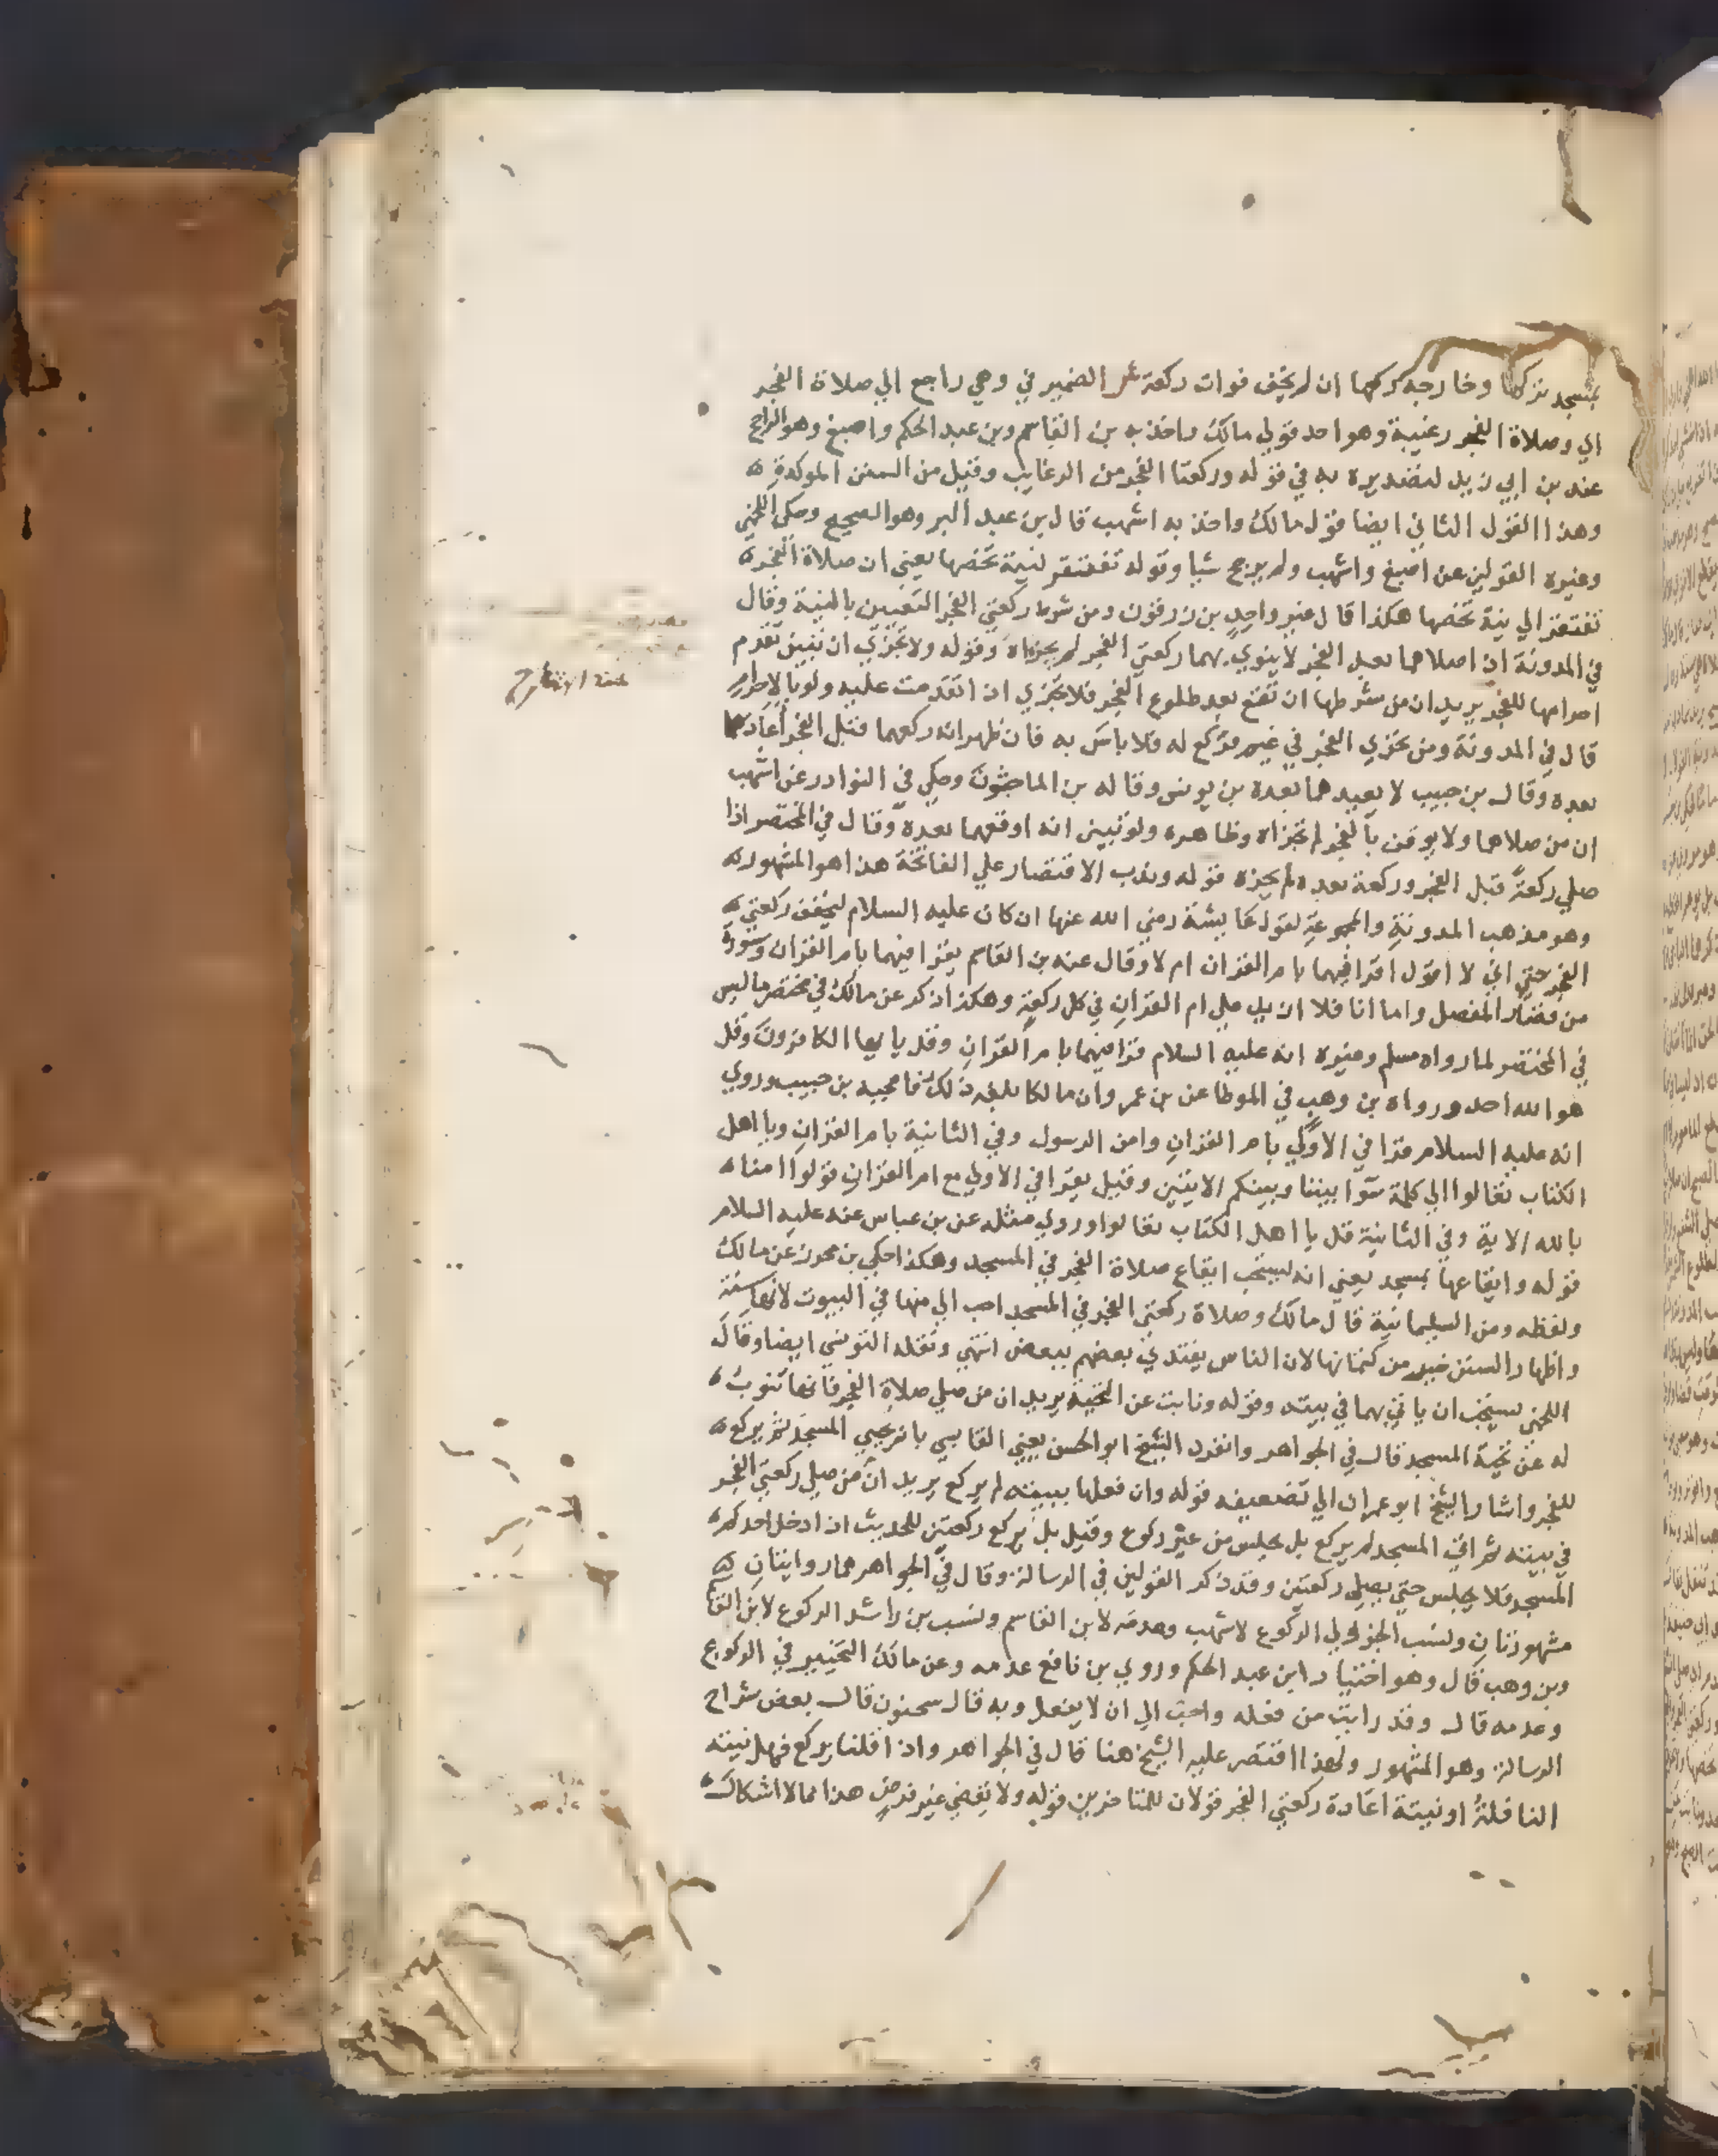 بمسجد تركها وخارجه ركعها ان لم يخف فوات ركعة ش الضمير في وهي راجع الي صلاة الفجر
اي وصلاة الفجر رغيبة وهو احد قولي مالك واخذ به بن القاسم وبن عبد الحكم واصبغ وهو الراجح
عند بن ابي زيد لتصديره به في قوله وركعتا الفجر من الرغايب وقيل من السنن الموكدة
وهذا القول الثاني ايضا قول مالك واخذ به اشهب قال بن عبد البر وهو الصحيح وحكي اللخمي
وغيره القولين عن اصبغ واشهب ولم يرجح شيا وقوله تفتقر لنية تخصها يعني ان صلاة الفجر
تفتقر الي نية تخصها هكذا قال غير واحد بن زرقون ومن شرط ركعتي الفجر التعيين بالنية وقال
في المدونة ان صلاهما بعد الفجر لا ينوي بهما ركعتي الفجر لم يجزاه وقوله ولا تجزي ان تبين تقدم
احرامها للفجر يريد ان من شرطها ان تقع بعد طلوع الفجر فلا تجزي ان تقدمت عليه ولو بالاحرام
قال في المدونة ومن تحري الفجر في غيم فركع له فلا باس به فان ظهر انه ركعهما قبل الفجر اعادهما
بعده وقال بن حبيب لا يعيدهما بعده بن يونس وقاله بن الماجشون وحكي في النوادر عن اشهب
ان من صلاهما ولا يوقن بالفجر لم تجزاه وظاهره ولو تبين انه اوقعهما بعده وقال في المختصر اذا
صلي ركعة قبل الفجر وركعة بعده لم يجزه قوله وندب الاقتصار علي الفاتحة هذا هو المشهور
وهو مذهب المدونة والمجموعة لقول عايشة رضي الله عنها ان كان عليه السلام ليخفف ركعتي
الفجر حتي اني لا اقول اقرا فيهما بام القران ام لا وقال عنه بن القاسم يقرا فيهما بام القران وسورة
من قصار المفصل واما انا فلا ازيد علي ام القران في كل ركعة وهكذا ذكر عن مالك في مختصر ما ليس
في المختصر لما رواه مسلم وغيره انه عليه السلام قرا فيهما بام القران وقل يا ايها الكافرون وقل
هو الله احد ورواه بن وهب في الموطا عن بن عمر وان مالكا بلغه ذلك فاعجبه بن حبيب وروي
انه عليه السلام قرا في الاولي بام القران وامن الرسول وفي الثانية بام القران ويا اهل
الكتاب تعالوا الي كلمة سوا بيننا وبينكم الايتين وقيل يقرا في الاولي مع ام القران قولوا امنا
بالله الاية وفي الثانية قل يا اهل الكتاب تعالوا وروي مثله عن بن عباس عنه عليه السلام
قوله وايقاعها بمسجد يعني انه يستحب ايقاع صلاة الفجر في المسجد وهكذا حكي بن محرز عن مالك
ولفظه ومن السليمانية قال مالك وصلاة ركعتي الفجر في المسجد احب الي منها في البيوت لانها سنة
واظهار السنن خير من كتمانها لان الناس يقتدي بعضهم ببعض انتهي ونقله التونسي ايضا وقال
اللخمي يستحب ان ياتي بهما في بيته وقوله ونابت عن التحية يريد ان من صلي صلاة الفجر فانها تنوب
له عن تحية المسجد قال في الجواهر وانفرد الشيخ ابو الحسن يعني القابسي بانه يحيي المسجد ثم يركع
للفجر واشار الشيخ ابو عمران الي تضعيفه قوله وان فعلها ببيته لم يركع يريد ان من صلي ركعتي الفجر
في بيته ثم اتي المسجد لم يركع بل يجلس من غير ركوع وقيل بل يركع ركعتين للحديث اذا دخل احدكم
المسجد فلا يجلس حتي يصلي ركعتين وقد ذكر القولين في الرسالة وقال في الجواهر هما روايتان
مشهورتان ونسب الجزولي الركوع لاشهب وعدمه لابن القاسم ونسب بن راشد الركوع لابن القاسم
وبن وهب قال وهو اختيار ابن عبد الحكم وروي بن نافع عدمه وعن مالك التخيير في الركوع
وعدمه قال وقد رايت من فعله واحب الي ان لا يفعل وبه قال سحنون قال بعض شراح
الرسالة وهو المشهور ولهذا اقتصر عليه الشيخ هنا قال في الجواهر واذا قلنا يركع فهل بنية
النافلة او بنية اعادة ركعتي الفجر قولان للمتاخرين قوله ولا يقضي غير فرض هذا مما لا اشكال